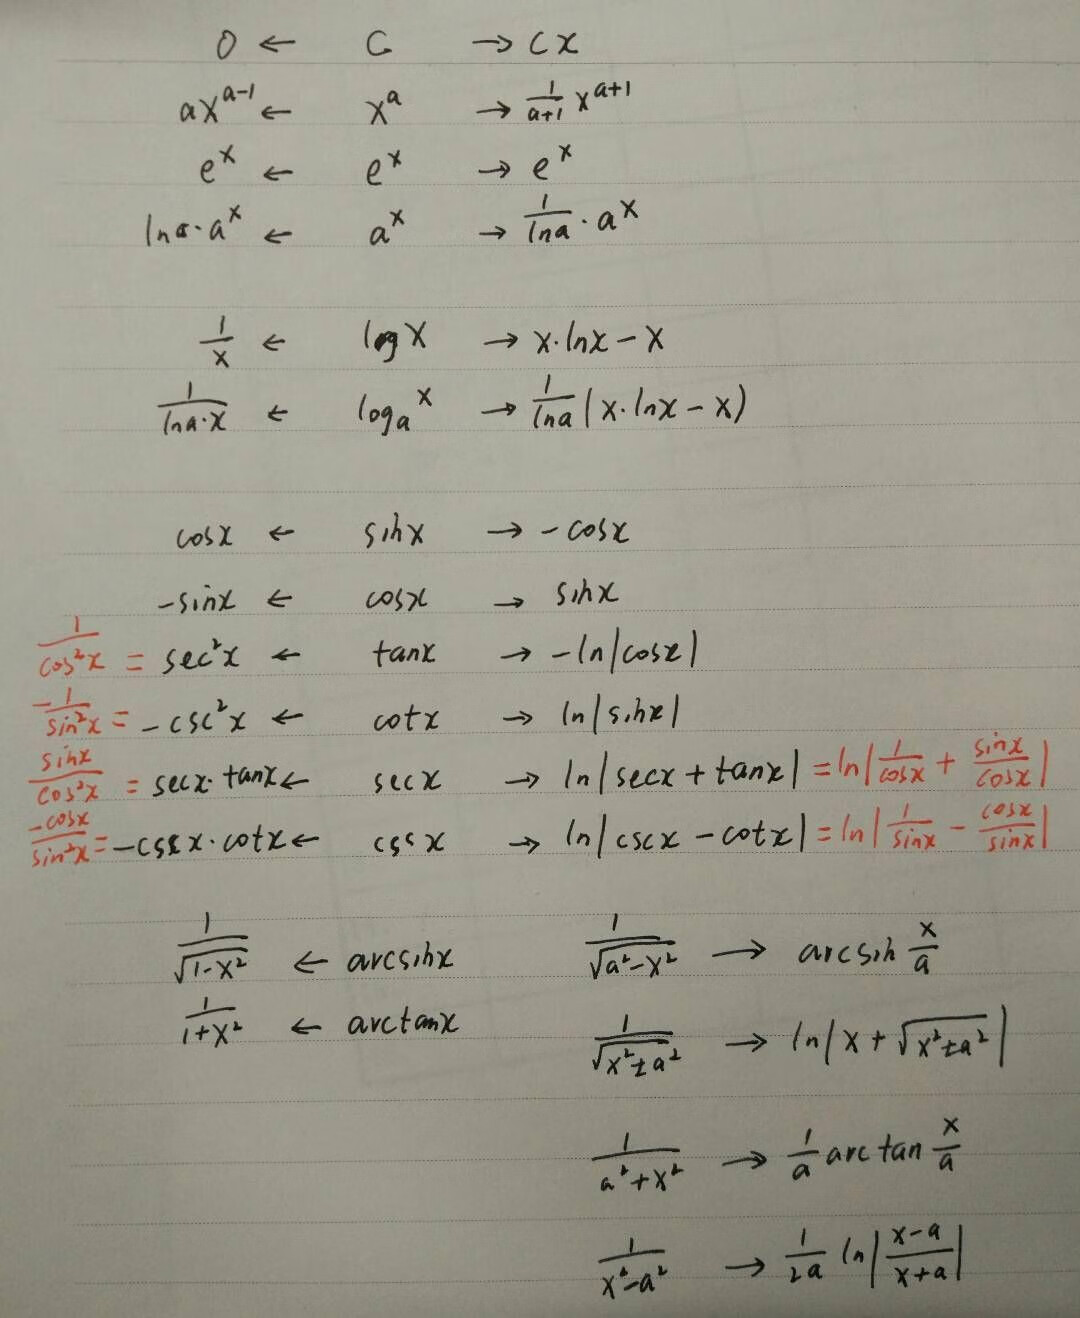 0 ← C → cx
ax^{a-1} ← x^a → \frac{1}{a+1} x^{a+1}
e^x ← e^x → e^x
lna·a^x ← a^x → \frac{1}{lna}·a^x
\frac{1}{x} ← logx → x·lnx - x
\frac{1}{lna·x} ← log_a^x → \frac{1}{lna}(x·lnx - x)
cosx ← sinx → -cosx
-sinx ← cosx → sinx
\frac{1}{cos²x} = sec²x ← tanx → -ln|cosx|
\frac{-1}{sin²x} = -csc²x ← cotx → ln|sinx|
\frac{sinx}{cos²x} = secx·tanx ← secx → ln|secx + tanx| = ln|\frac{1}{cosx} + \frac{sinx}{cosx}|
\frac{-cosx}{sin²x} = -cscx·cotx ← cscx → ln|cscx - cotx| = ln|\frac{1}{sinx} - \frac{cosx}{sinx}|
\frac{1}{\sqrt{1-x²}} ← arcsinx \frac{1}{\sqrt{a²-x²}} → arcsin\frac{x}{a}
\frac{1}{1+x²} ← arctanx \frac{1}{\sqrt{x²±a²}} → ln|x + \sqrt{x²±a²}|
\frac{1}{a²+x²} → \frac{1}{a} arctan\frac{x}{a}
\frac{1}{x²-a²} → \frac{1}{2a} ln|\frac{x-a}{x+a}|